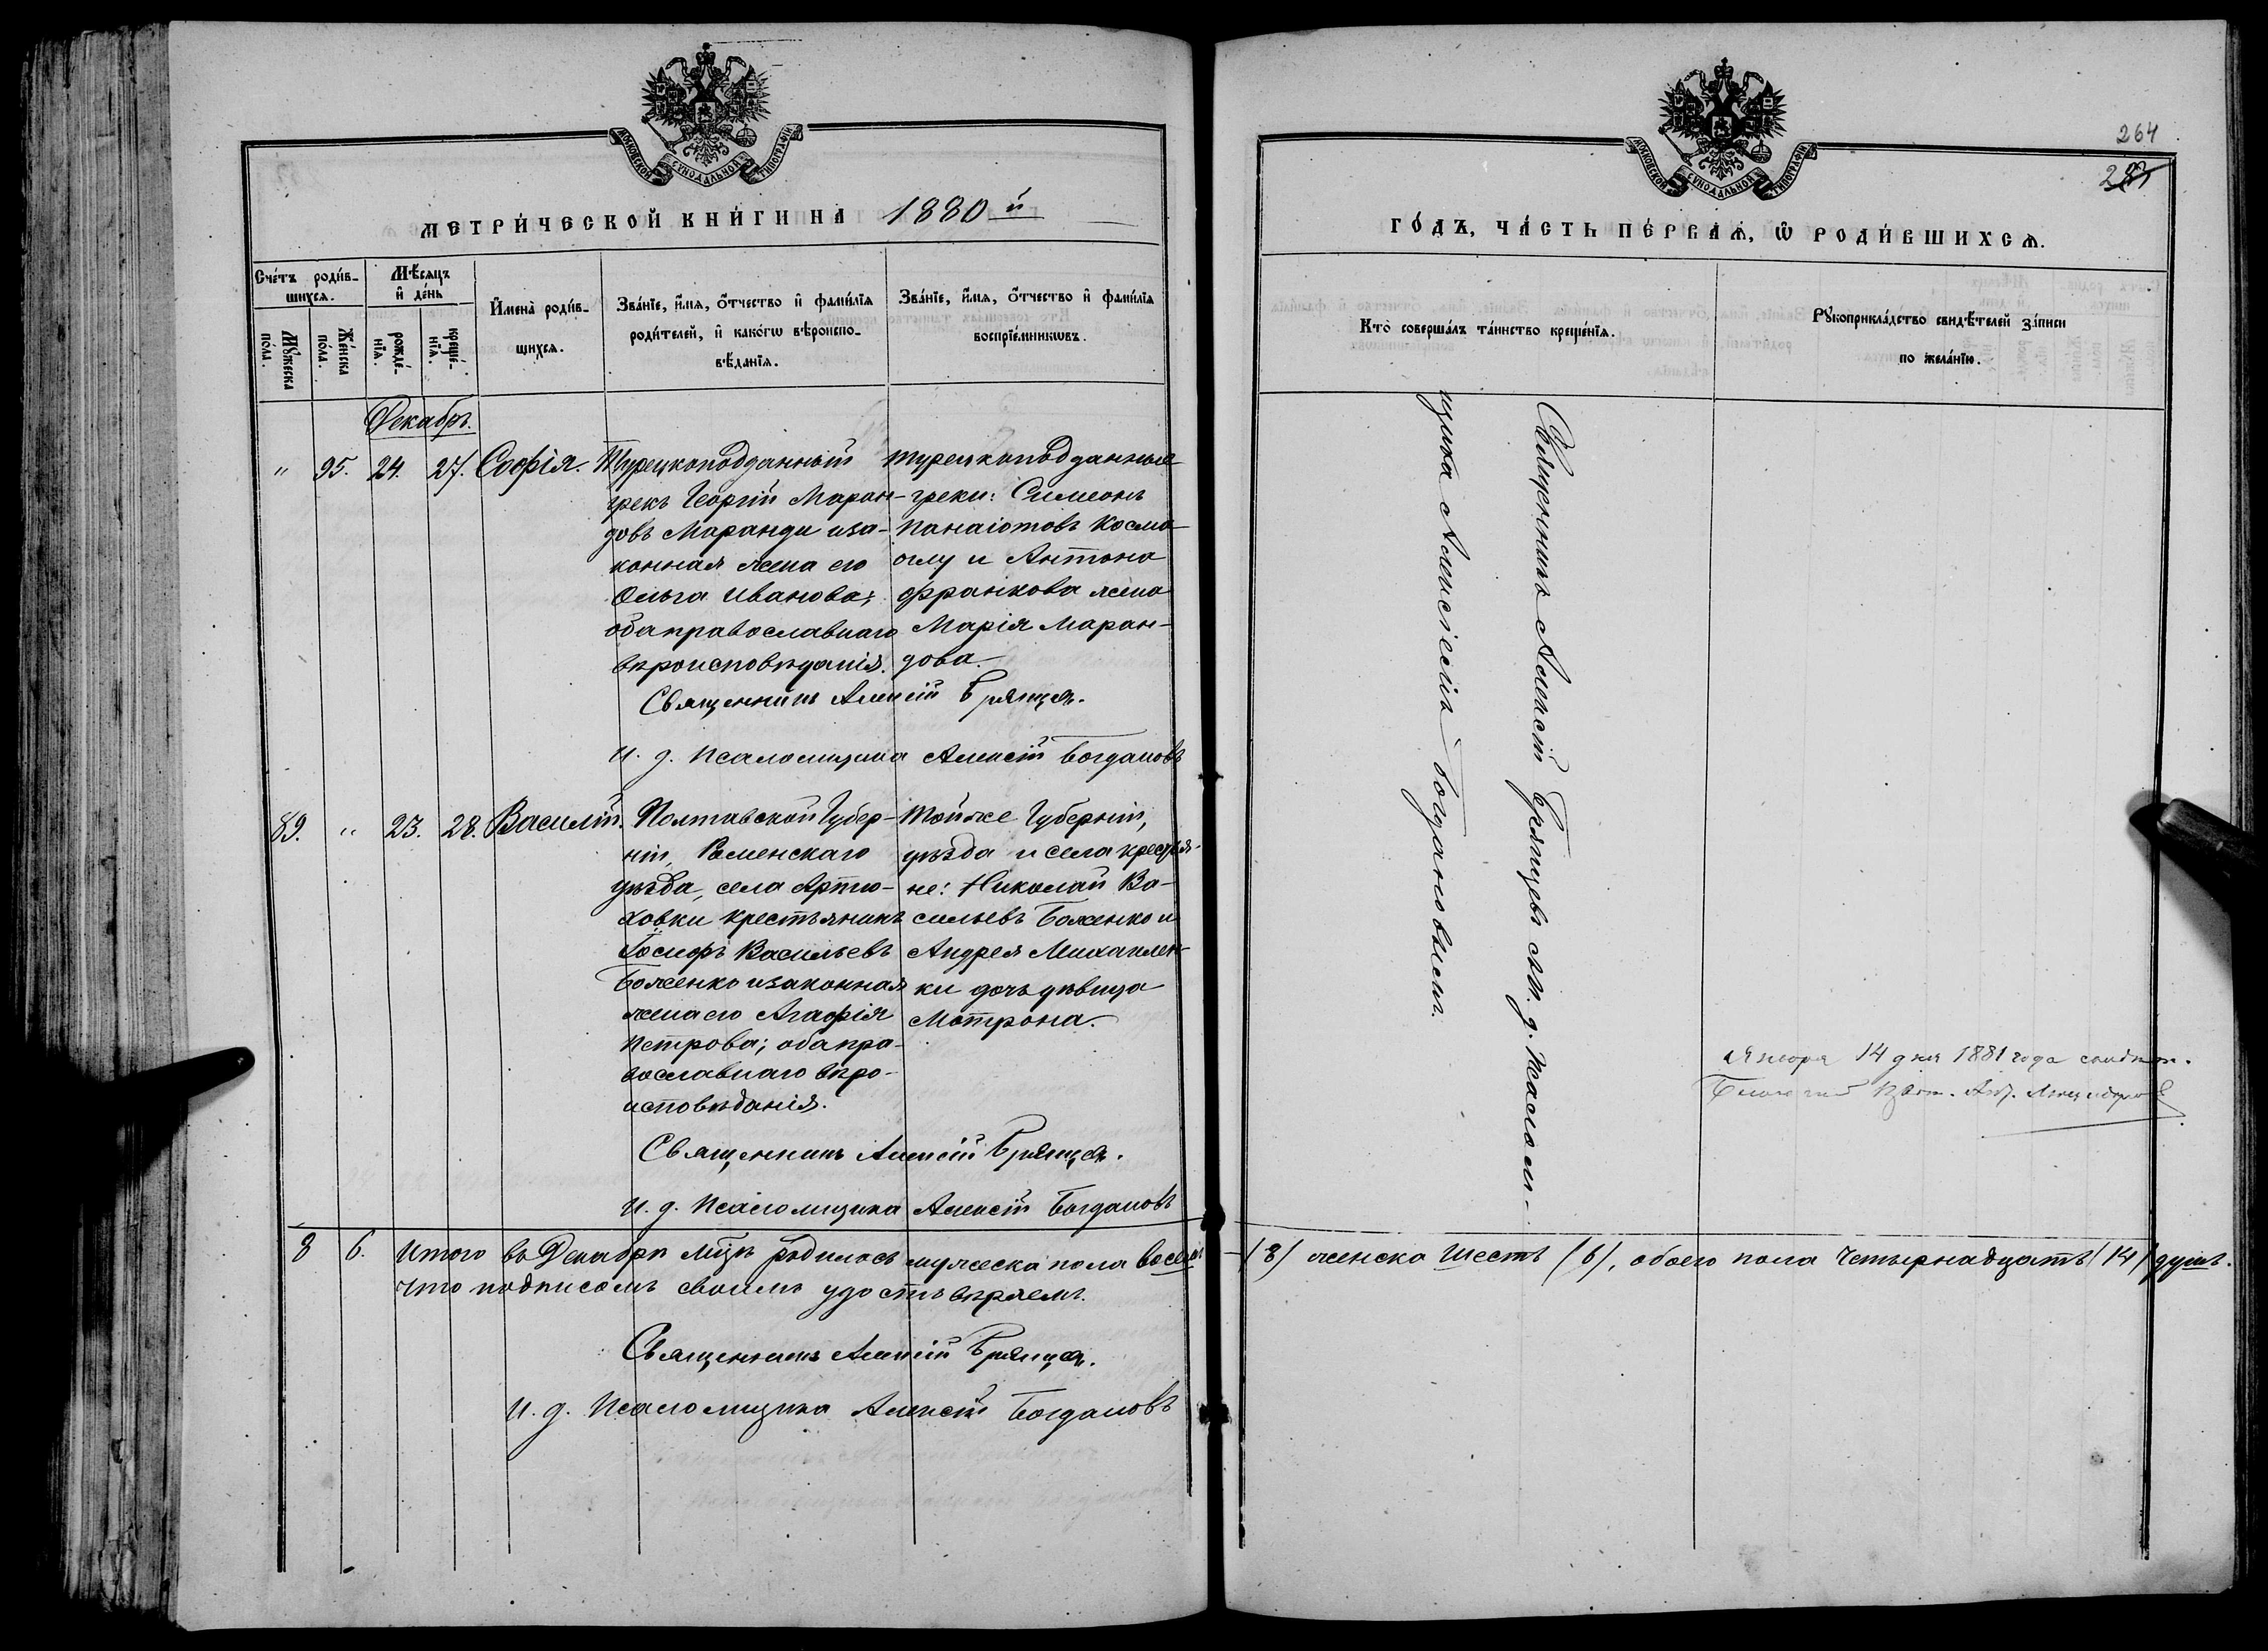 МОСКОВСКОЙ СУНОДАЛЬНОЙ ТИПОГРАФІИ
МЕТРИ́ЧЕСКОЙ КНИ́ГИ НА 1880й
Счéтъ роди́в-
шихсѧ.
Мꙋ́жеска
по́ла.
Же́нска
по́ла.
Мѣ́сѧцъ
и҆ де́нь
рожде́-
нїѧ.
креще́-
нїѧ.
И҆мена̀ роди́в-
шихсѧ.
Зва́нїе, и҆́мѧ, ѻ҆́тчество и҆ фами́лїѧ
роди́телей, и҆ како́гѡ вѣроиспо-
вѣ́данїѧ.
Зва́нїе, и҆́мѧ, ѻ҆́тчество и҆ фами́лїѧ
воспрїе́мникѡвъ.
Декабрь.
" 95. 24. 27. Софія.
Турецкоподданный
грекъ Георгій Маран-
довъ Маранди иза-
конная жена его
Ольга Иванова;
оба православнаго
вѣроисповѣданія.
турецкоподданные
греки: Симеонъ
Панаіотовъ Космо
оглу и Антона
Франкова жена
Марія Маран-
дова.
Священникъ Алексій Брянцев.
И. д. Псаломщика Алексій Богдановъ
89. " 23. 28. Василій.
Полтавской Губер-
ніи, Роменскаго
уѣзда, села Артю-
ховки крестьянинъ
Іосифъ Васильевъ
Боженко изаконная
жена его Агафія
Петрова; оба пра-
вославнаго вѣро-
исповѣданія.
Тойже Губерніи,
уѣзда и села крестья-
не: Николай Ва-
сильевъ Боженко и
Андрея Михаилен-
ки дочь дѣвица
Мотрона.
Священникъ Алексій Брянцев.
И. д. Псаломщика Алексій Богдановъ
8 6. Итого въ Декабрѣ мѣцѣ родилось мужеска пола восемь
(8) женска шесть (6), обоего пола четырнадцать (14) душъ.
Что подписомъ своимъ удостовѣряемъ.
Священникъ Алексій Брянцев.
И. д. Псаломщика Алексій Богдановъ
264
МОСКОВСКОЙ СУНОДАЛЬНОЙ ТИПОГРАФІИ
ГО́ДЪ, ЧА́СТЬ ПЕ́РВАѦ, Ѡ҆ РОДИ́ВШИХСѦ.
Кто̀ соверша́лъ та́инство креще́нїѧ.
Рꙋкоприкла́дство свидѣ́телей за́писи
по жела́нїю.
Священникъ Алексій Брянцевъ съ и. д. псалом-
щика Алексіемъ Богдановымъ.
Января 14 дня 1881 года свидѣт.